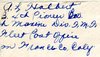 A. L. Halbert
2nd Pioneer Bn
2nd Marine Div. F.M.F.
Fleet Post Office
San Francisco, Calif